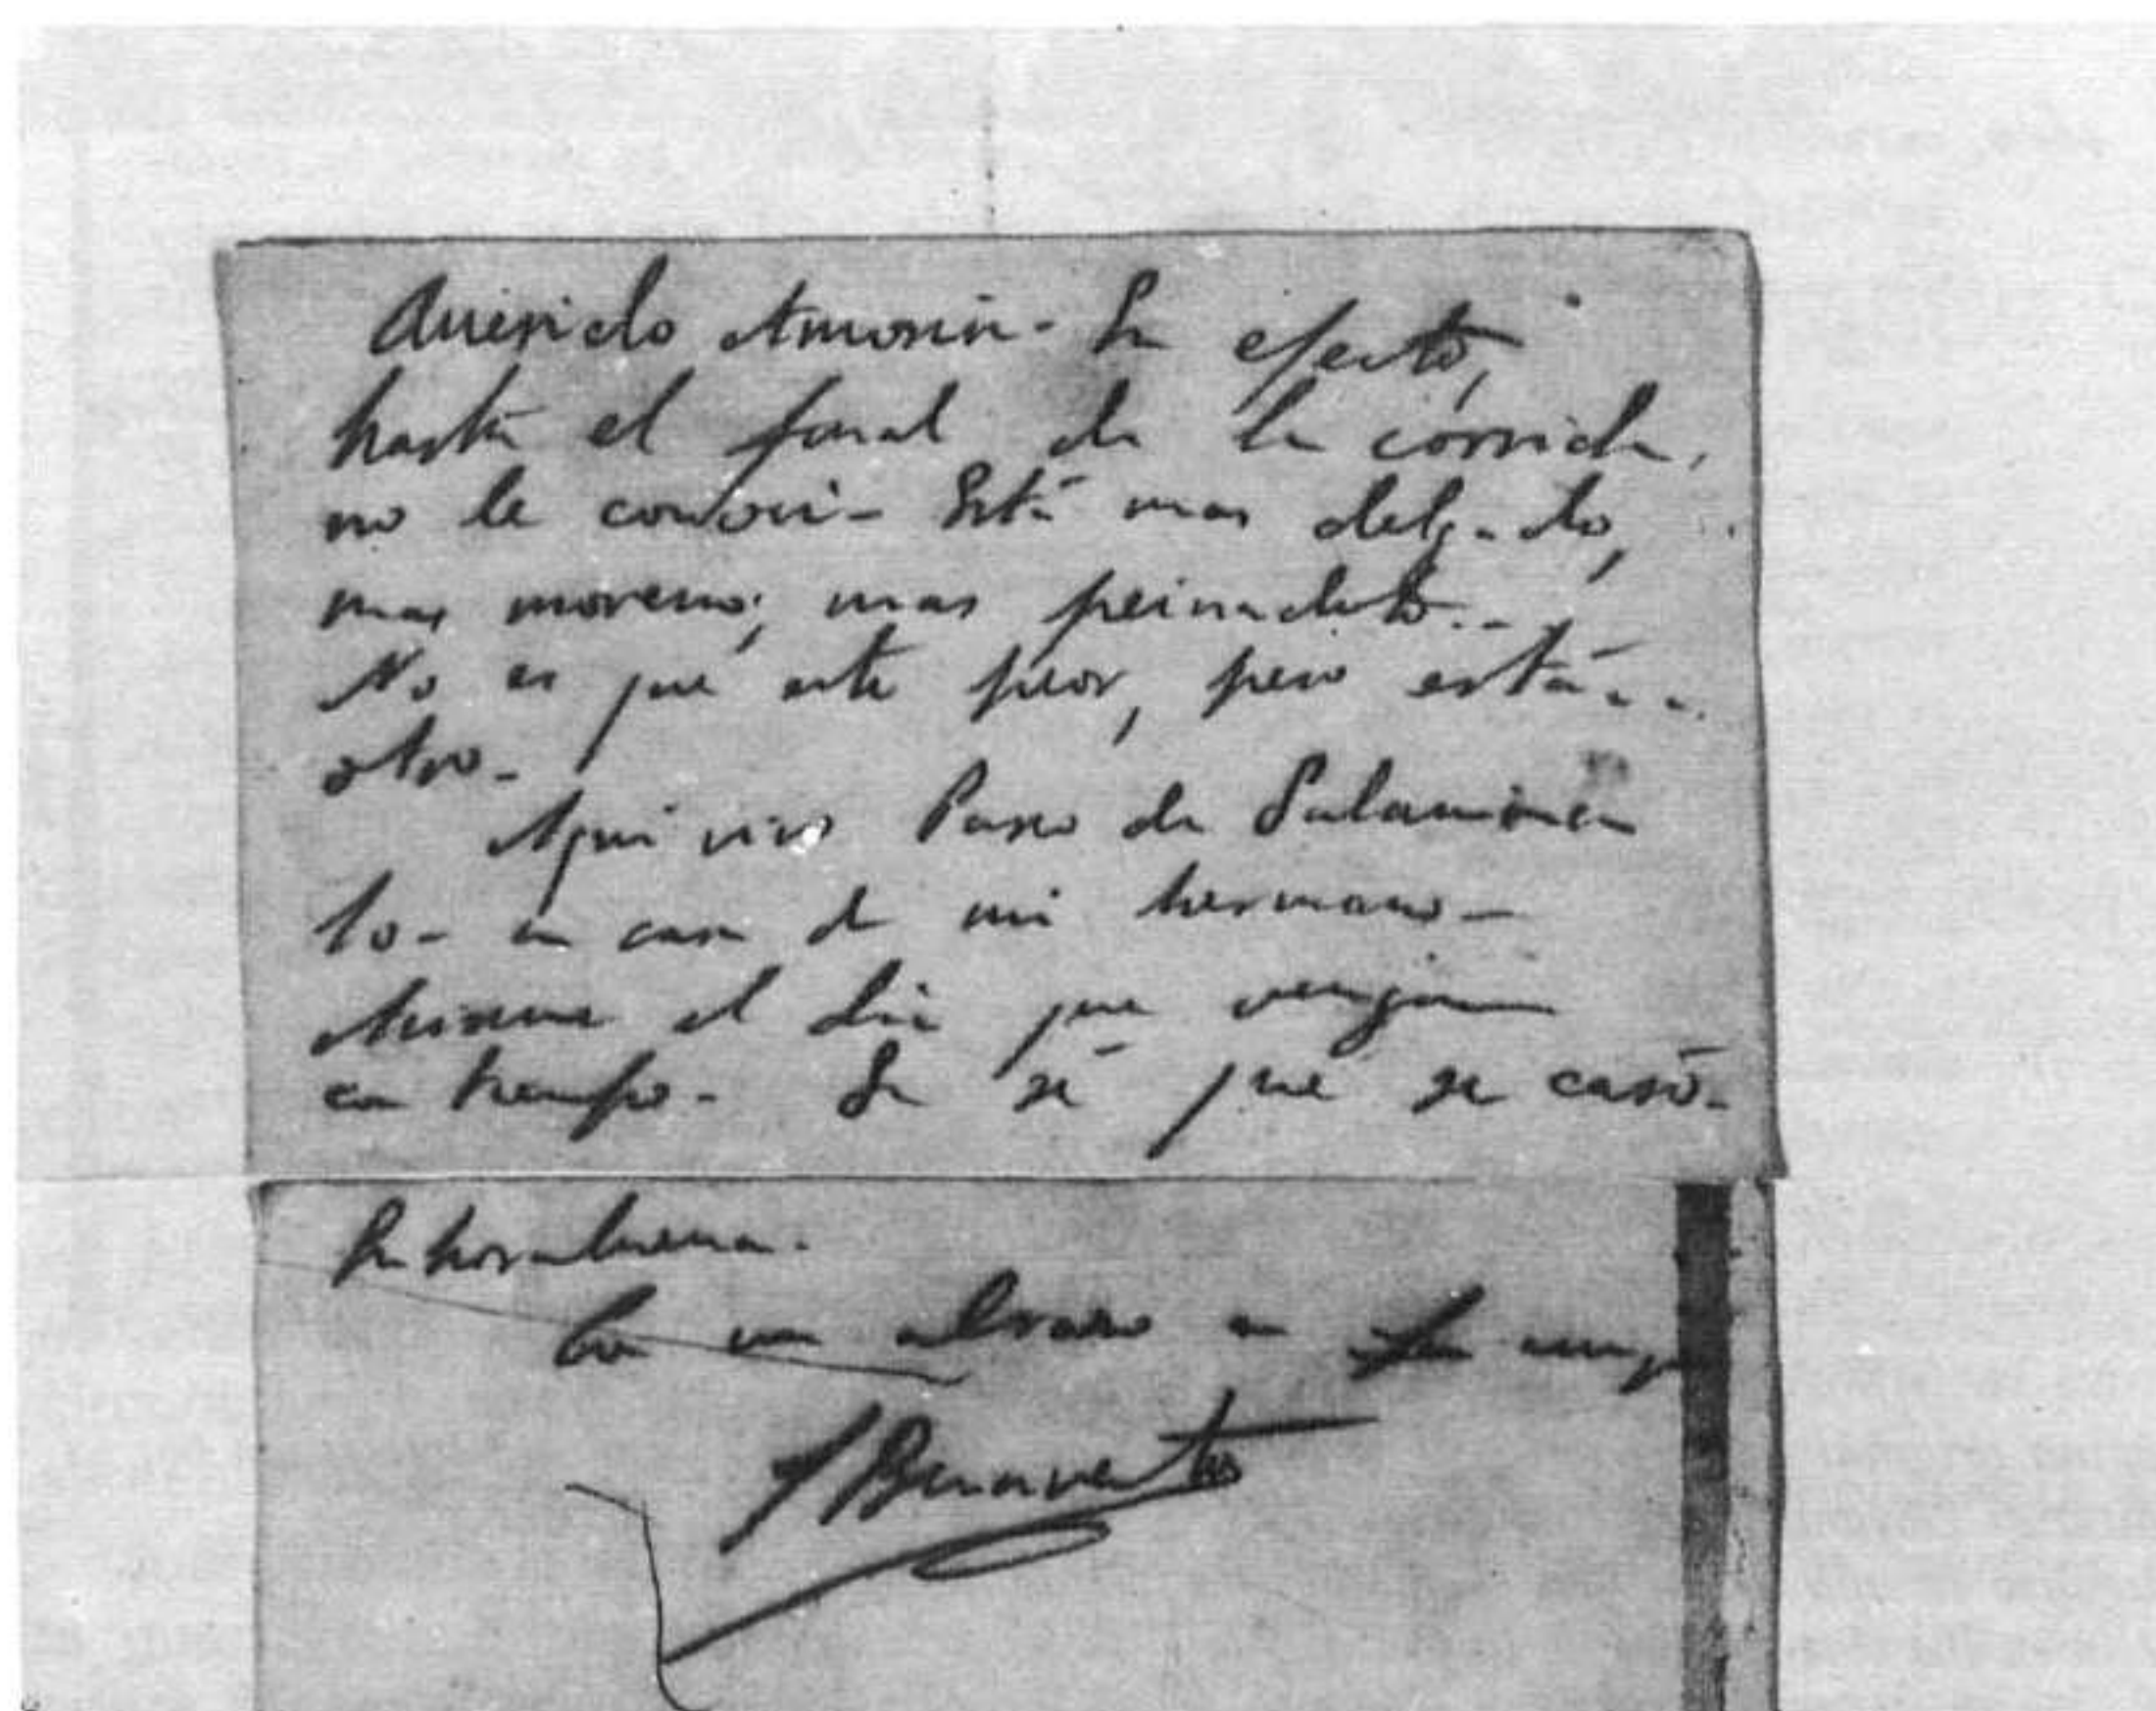 Querido Amorin - En efecto,
hasta el final de la corrida,
no le conocí - Está mas delgado,
mas moreno; mas peinadito...
No es que esté peor, pero está...
otro -
Aquí vivo Paseo de Salamanca
10 - en casa de mi hermano -
Aviseme el dia que vengan
con tiempo - Ya sé que se casó -
Enhorabuena.
Con un abrazo a
J Benavente